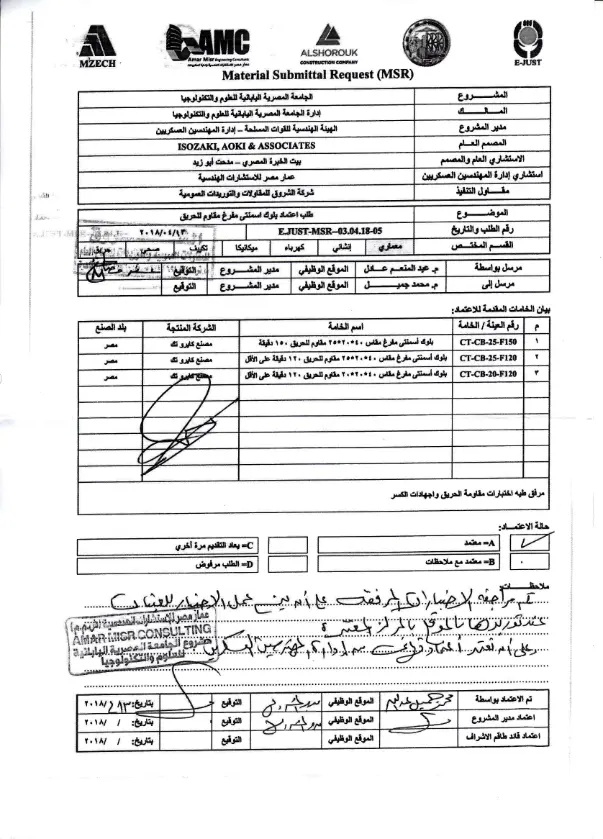 MZECH
AMC
Amar Misr Engineering Consultants
ALSHOROUK
CONSTRUCTION COMPANY
E-JUST
Material Submittal Request (MSR)
المشـــــروع الجامعة المصرية اليابانية للعلوم والتكنولوجيا
المـــالـــك إدارة الجامعة المصرية اليابانية للعلوم والتكنولوجيا
مدير المشروع الهيئة الهندسية للقوات المسلحة – إدارة المهندسين العسكريين
المصمم العـام ISOZAKI, AOKI & ASSOCIATES
الاستشاري العام والمصمم بيت الخبرة المصري – مدحت أبو زيد
استشاري إدارة المهندسين العسكريين عمار مصر للاستشارات الهندسية
مقــاول التنفيذ شركة الشروق للمقاولات والتوريدات العمومية
الموضـــــوع طلب اعتماد بلوك اسمنتى مفرغ مقاوم للحريق
رقم الطلب والتاريخ E.JUST-MSR--03.04.18-05 ٢٠١٨/٠٤/١٣
القسم المختص معماري إنشائي كهرباء ميكانيكا تكييف صحي
مرسل بواسطة م. عبد المنعم عادل الموقع الوظيفي مدير المشروع التوقيع
مرسل إلى م. محمد جميل الموقع الوظيفي مدير المشروع التوقيع
بيان الخامات المقدمة للاعتماد:
م رقم العينة / الخامة اسم الخامة الشركة المنتجة بلد الصنع
١ CT-CB-25-F150 بلوك أسمنتى مفرغ مقاس ٤٠*٢٠*٢٥ مقاوم للحريق ١٥٠ دقيقة مصنع كايرو تك مصر
٢ CT-CB-25-F120 بلوك أسمنتى مفرغ مقاس ٤٠*٢٠*٢٥ مقاوم للحريق ١٢٠ دقيقة على الأقل مصنع كايرو تك مصر
٣ CT-CB-20-F120 بلوك أسمنتى مفرغ مقاس ٤٠*٢٠*٢٠ مقاوم للحريق ١٢٠ دقيقة على الأقل مصنع كايرو تك مصر
مرفق طيه اختبارات مقاومة الحريق واجهادات الكسر
حالة الاعتمــاد:
A= معتمد C= يعاد التقديم مرة أخري
B= معتمد مع ملاحظات D= الطلب مرفوض
ملاحظــات
تم مراجعة الاختبارات المرفقة على أن يتم عمل الاختبار للعينات
عند توريدها بالموقع بالمركز
وعلى أن تعتبر
عمار مصر للاستشارات الهندسية (ش.م.م)
AMAR MISR CONSULTING
مشروع الجامعة المصرية اليابانية
للعلوم والتكنولوجيا
تم الاعتماد بواسطة الموقع الوظيفي التوقيع بتاريخ: ٢٠١٨/
اعتماد مدير المشروع الموقع الوظيفي التوقيع بتاريخ: / / ٢٠١٨
اعتماد قائد طاقم الاشراف الموقع الوظيفي التوقيع بتاريخ: / / ٢٠١٨